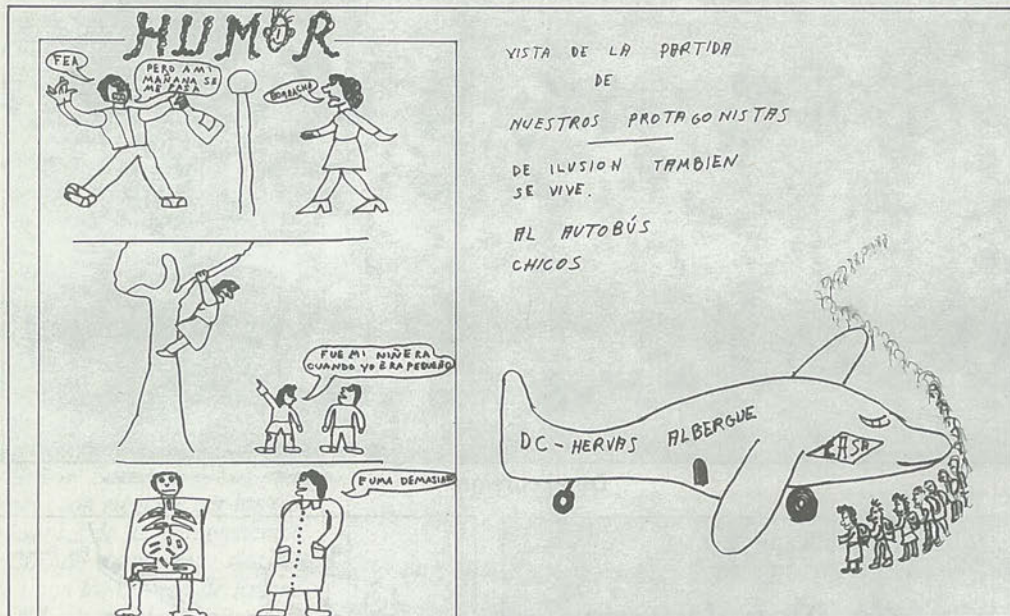 HUMOR
FEA
PERO A MI
MAÑANA SE
ME PASA
BORRACHO
FUE MI NIÑERA
CUANDO YO ERA PEQUEÑO
FUMA DEMASIADO
VISTA DE LA PARTIDA
DE
NUESTROS PROTAGONISTAS
DE ILUSION TAMBIEN
SE VIVE.
AL AUTOBÚS
CHICOS
DC-HERVAS ALBERGUE
CASA